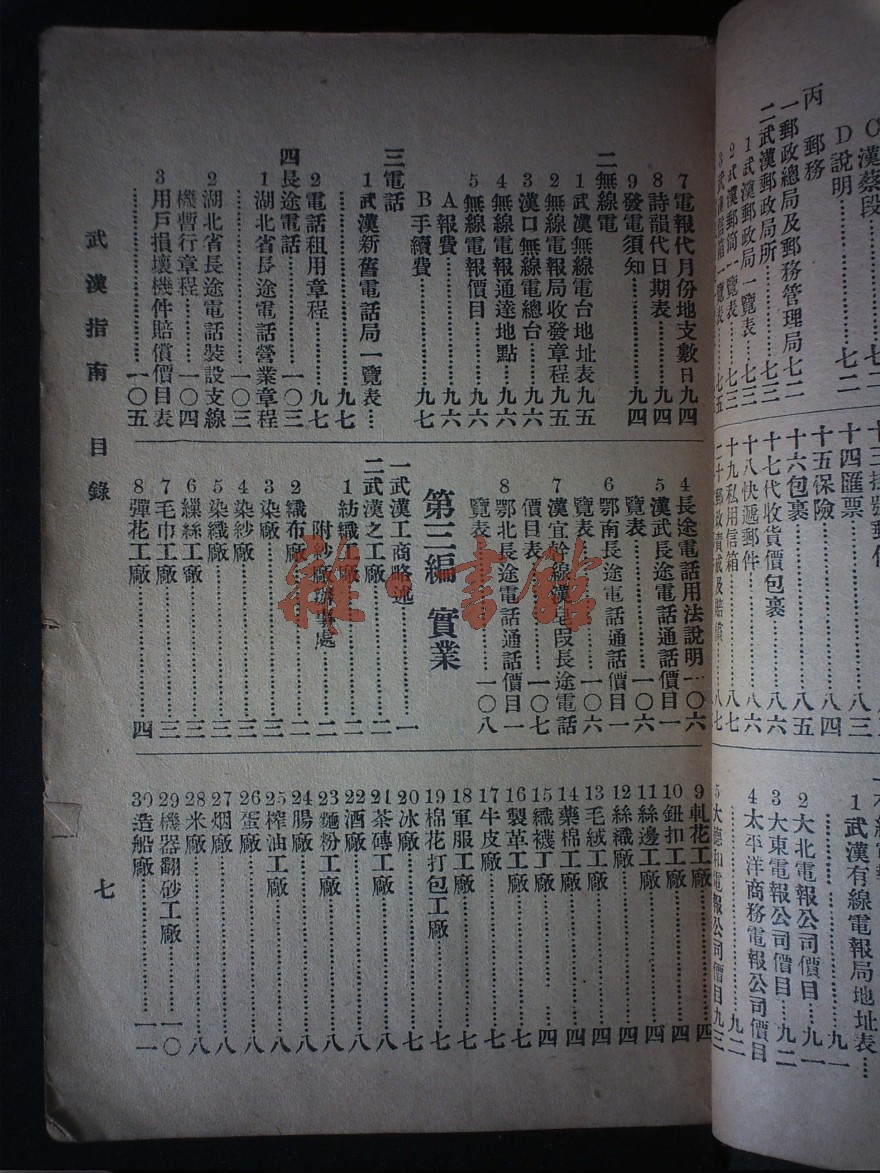 C漢蔡段……七二
D說明……七二
丙 郵務
一郵政總局及郵務管理局七二
二武漢郵政局所……七三
1武漢郵政局一覽表……七三
2武漢郵筒一覽表……七三
一覽表……七五
十四匯票……八三
十五保險……八四
十六包裹……八五
十七代收貨價包裹……八六
十八快遞郵件……八六
十九私用信箱……八七
八七
1武漢有線電報局地址表……
……九一
2大北電報公司價目……九一
3大東電報公司價目……九二
4太平洋商務電報公司價目
……九二
5大德和電報公司價目九三
7電報代月份地支數日九四
8詩韻代日期表……九四
9發電須知……九四
二無線電
1武漢無線電台地址表九五
2無線電報局收發章程九五
3漢口無線電總台……九六
4無線電報通達地點……九六
5無線電報價目……九六
A報費……九六
B手續費……九七
三電話
1武漢新舊電話局一覽表…
……九七
2電話租用章程……九七
四長途電話……一〇三
1湖北省長途電話營業章程
……一〇三
2湖北省長途電話裝設支線
機暫行章程……一〇四
3用戶損壞機件賠償價目表
……一〇五
4長途電話用法說明一〇六
5漢武長途電話通話價目一
覽表……一〇六
6鄂南長途電話通話價目一
覽表……一〇六
7漢宜幹線漢皂段長途電話
價目表……一〇七
8鄂北長途電話通話價目一
覽表……一〇八
第三編 實業
一武漢工商略述……一
二武漢之工廠……二
1紡織工廠……二
附紗廠辦事處……二
2織布廠……二
3染廠……三
4染紗廠……三
5染織廠……三
6繅絲工廠……三
7毛巾工廠……三
8彈花工廠……四
9軋花工廠……四
10鈕扣工廠……四
11絲邊工廠……四
12絲織廠……四
13毛絨工廠……四
14藥棉工廠……四
15織襪工廠……四
16製革工廠……七
17牛皮廠……七
18軍服工廠……七
19棉花打包工廠……七
20冰廠……七
21茶磚工廠……八
22酒廠……八
23麵粉工廠……八
24腸廠……八
25榨油工廠……八
26蛋廠……八
27烟廠……八
28米廠……八
29機器翻砂工廠……一〇
30造船廠……一二
武漢指南 目錄
七
雜·書館